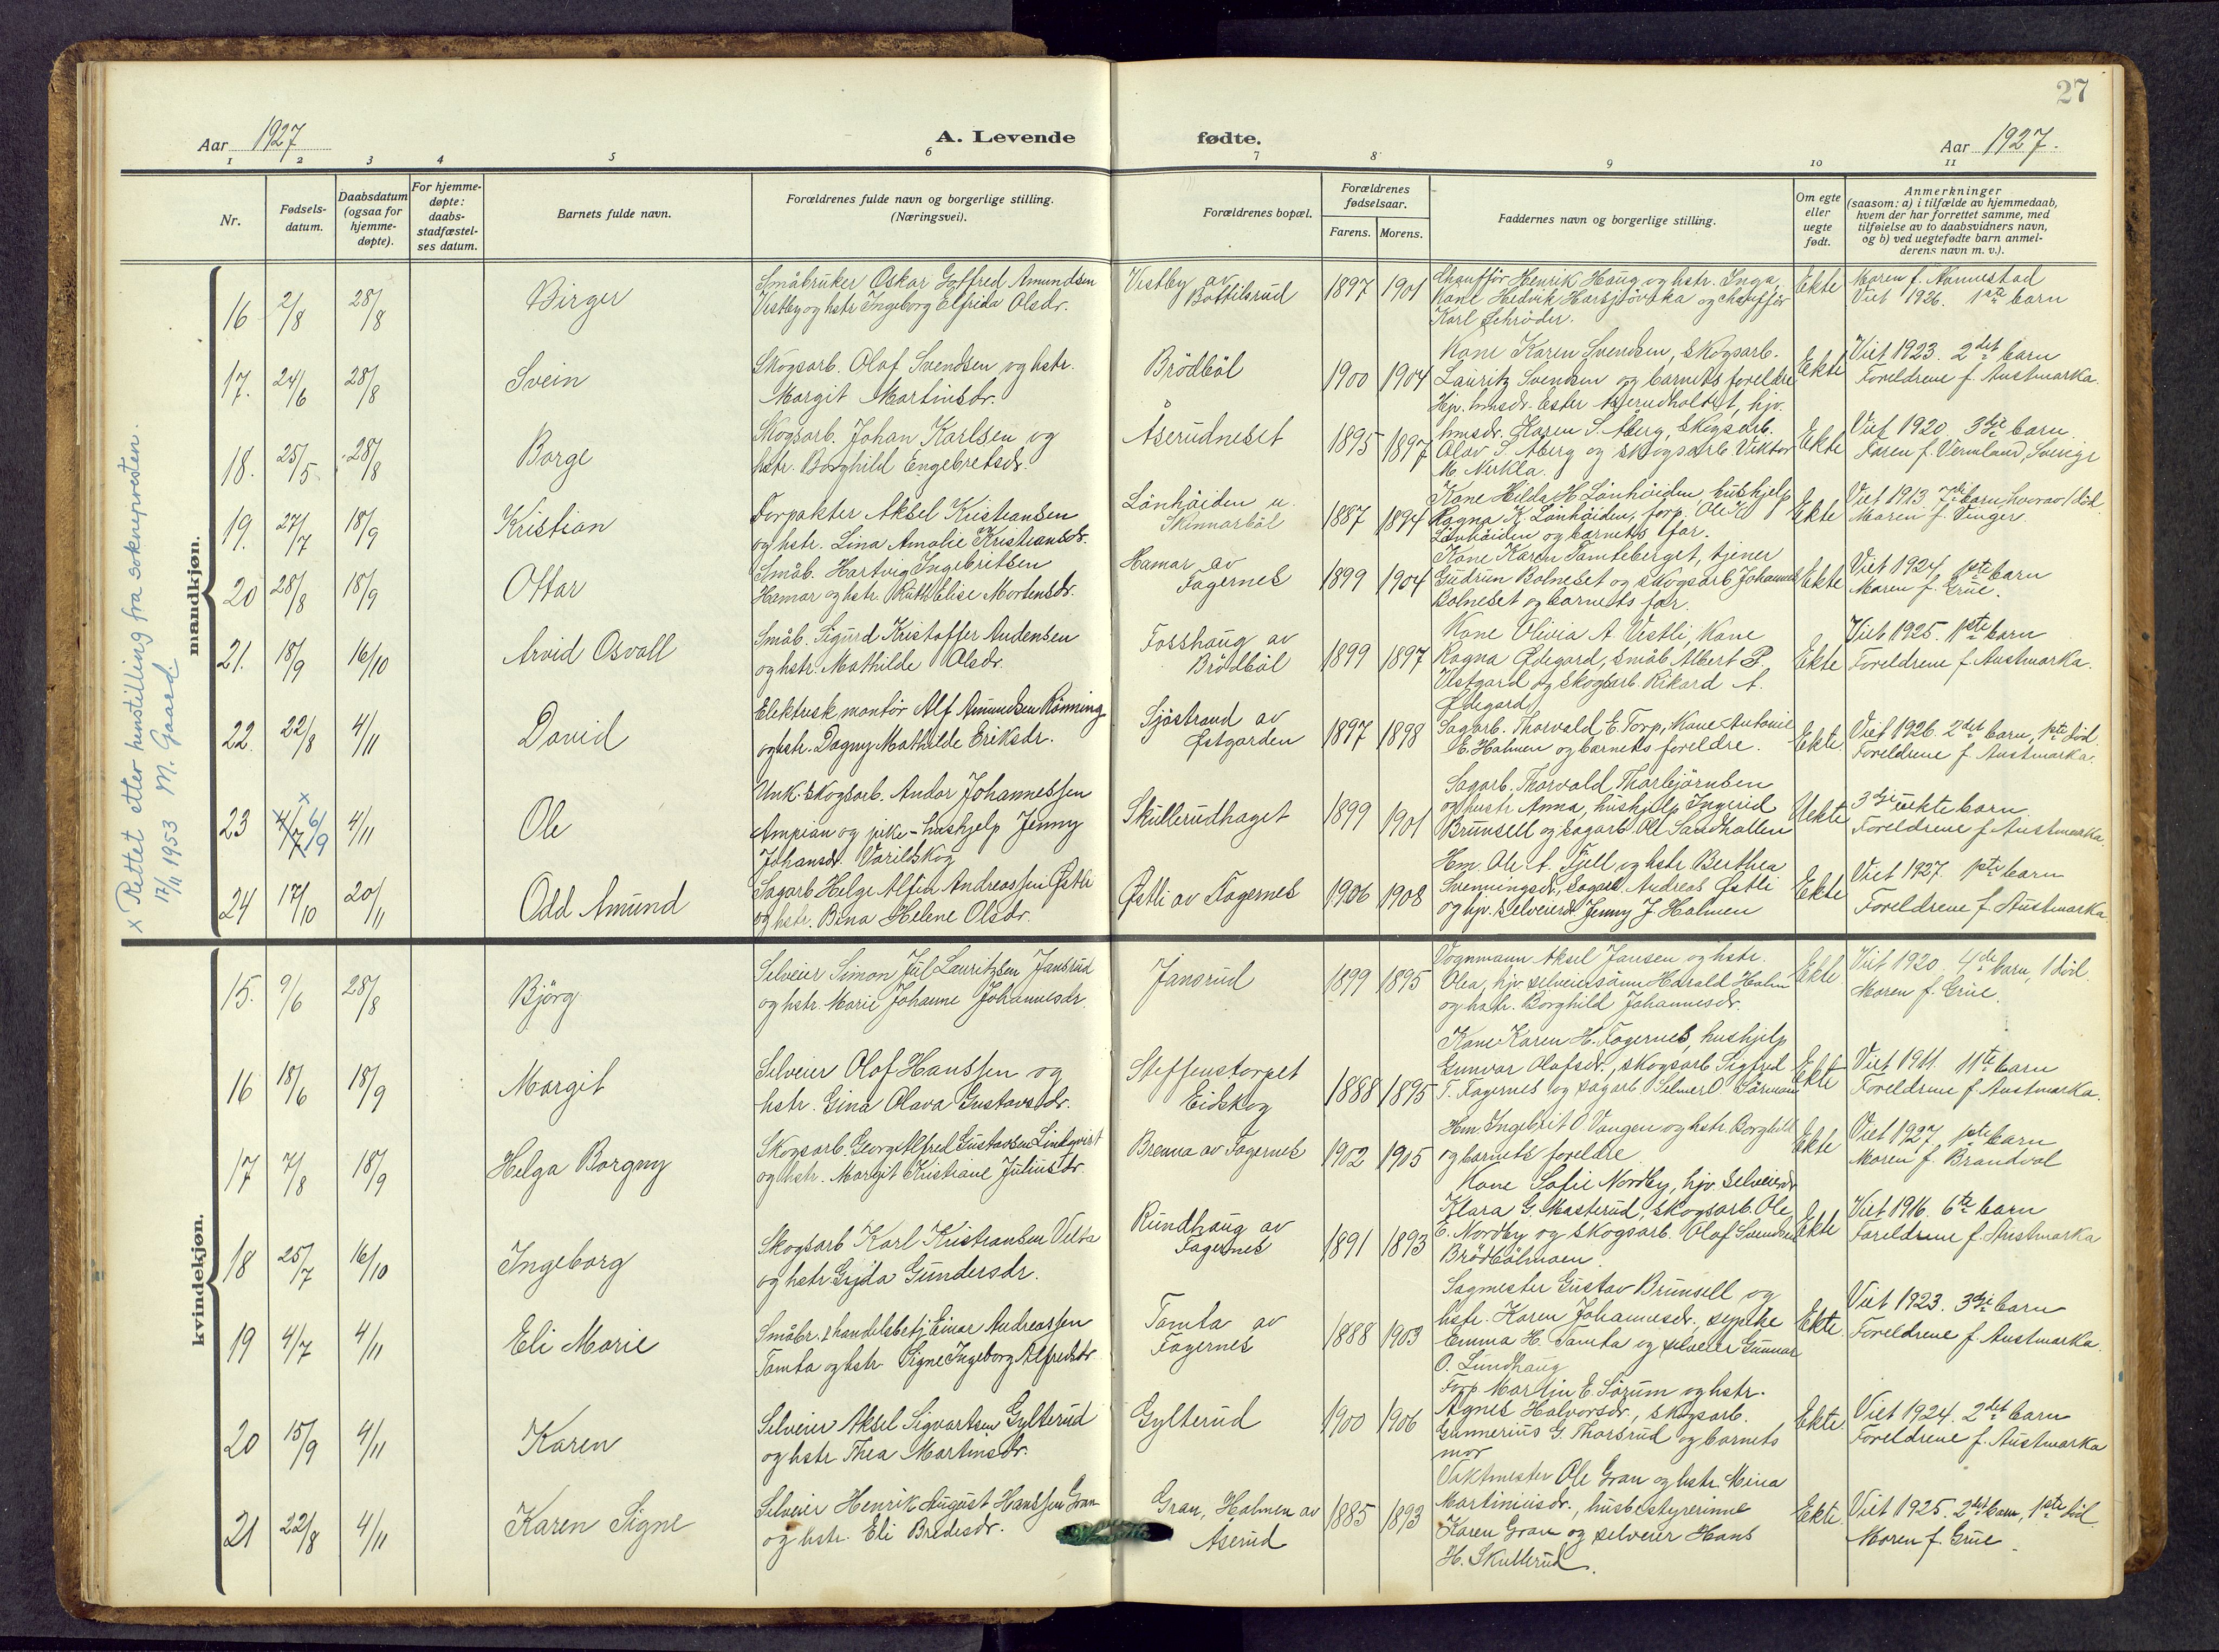 27
Aar 1927
A. Levende fødte.
Aar 1927.
1 2 3 4 5 6 7 8 9 10 11
Nr.
Fødsels-
datum.
Daabsdatum
(ogsaa for
hjemme-
døpte).
For hjemme-
døpte:
daabs-
stadfæstel-
ses datum.
Barnets fulde navn.
Forældrenes fulde navn og borgerlige stilling.
(Næringsvei).
Forældrenes bopæl.
Forældrenes
fødselsaar.
Farens. Morens.
Faddernes navn og borgerlige stilling.
Om egte
eller
uegte
født.
Anmerkninger
(saasom: a) i tilfælde av hjemmedaab,
hvem der har forrettet samme, med
tilføielse av to daabsvidners navn,
og b) ved uegtefødte barn anmel-
derens navn m. v.).
x Rettet etter henstilling fra sokneprosten.
17/11 1953 M. Gaard.
mandkjøn.
16 2/8 28/8 Birger
Småbruker Oskar Gotfred Amundsen
Vestby og hstr Ingeborg Elfrida Olsdr.
Vestby av
Bottilsrud
1897 1901
Chauffør Henrik Haug og hstr. Inga,
Kone Hedvik og chauffør
Karl Schrøder.
Ekte
Moren f. Nannestad
Viet 1926. 1ste barn
17. 24/6 28/8 Svein
Skogsarb. Olof Svendsen og hstr.
Margit Martinsdr.
Brödböl
1900 1904
Kone Karen Svendsen, skogsarb.
Lauritz Svendsen og barnets foreldre
Ekte
Viet 1923. 2det barn
Foreldrene f. Austmarka.
18. 25/5 28/8 Borge
Skogsarb. Johan Karlsen og
hstr. Borghild Engebretsdr.
Åserudneset
1895 1897
Hjv. hmsdr. Ester Åserudholdet, hjv.
hmsdr. Karen S. Åberg, skogsarb.
Olav S. Åberg og skogsarb. Viktor
M. Nirkla.
Ekte
Viet 1920 3dje barn.
Faren f. Vermland, Sverige
19. 27/7 18/9 Kristian
Forpakter Aksel Kristiansen
og hstr. Lina Amalie Kristiansdr.
Lönhöiden u.
Skinnarböl
1887 1894
Kone Hilda H. Lönhöiden, hushjelp
Ragna K. Lönhöiden, forp. Ole K.
Lönhöiden og barnets far.
Ekte
Viet 1913 7de barn, hvorav 1 död.
Moren f. Vinger.
20 28/8 18/9 Ottar
Småb. Hartvig Ingebritsen
Hamar og hstr. Ruth Elise Mortensdr.
Hamar av
Fagernes
1899 1904
Kone Karen Tamteberget, tjener
Gudrun Bolneset og skogsarb Johannes
Bolneset og barnets far.
Ekte
Viet 1924, 1ste barn
Moren f. Grue.
21. 18/9 16/10 Arvid Osvall
Småb. Sigurd Kristoffer Audensen
og hstr. Mathilde Olsdr.
Fosshaug av
Brödböl
1899 1897
Kone Olivia A. Vestli, Kone
Ragna Ødegard, småb Albert P.
Vestgard og skogsarb. Rikard A.
Ødegard
Ekte
Viet 1925. 1ste barn
Foreldrene f. Austmarka.
22. 22/8 4/11 David
Elektrisk montör Alf Amundsen Rönning
og hstr. Dagny Mathilde Eriksdr.
Sjöstrand av
Østgarden
1897 1898
Sagarb. Thorvald E. Torp, Kone Antonie
E. Holmen og barnets foreldre.
Ekte.
Viet 1926. 2det barn, 1ste död.
Foreldrene f. Austmarka.
23 4/7 x 6/9 4/11 Ole
Unk. skogsarb. Andor Johannessen
Ampian og pike-hushjelp Jenny
Johansdr. Varildskog
Skullerudhaget
1899 1901
Sagarb. Thorvald Thorbjörnsen
og hustr Anna, hushjelp Ingrid
Brunsell og sagarb Ole Sandhollen
Uekte
3dje uekte barn
Foreldrene f. Austmarka.
24 17/10 20/11 Odd Amund
Sagarb Helge Alfin Andreassen Østli
og hstr. Bina Helene Olsdr.
Østli av Fagernes
1906 1908
Hm. Ole A. Fjell og hstr Berthea
Svenningsdr, sagarb. Andreas Østli
og hjv. selveierdr Jenny J. Holmen
Ekte
Viet 1927 1ste barn
Foreldrene f. Austmarka
kvindekjøn.
15. 9/6 28/8 Björg
Selveier Simon Jul Lauritzsen Jansrud
og hstr. Marie Johanne Johannesdr.
Jansrud
1899 1895
Vognmann Aksel Jansen og hstr.
Olea, hjv. selveiersönn Harald Holm
og hstr. Borghild Johannesdr.
Ekte
Viet 1920 4de barn, 1 död.
Moren f. Grue.
16 18/6 18/9 Margit
Selveier Olof Hanssen og
hstr. Gina Olava Gustavsdr.
Steffenstorpet
Eidskog
1888 1895
Kone Karen H. Fagernes, hushjelp
Gunvor Olafsdr., skogsarb Sigfred
T. Fagernes og sagarb Selmer O. Sörman
Ekte
Viet 1911. 11te barn
Foreldrene f. Austmarka.
17 7/8 18/9 Helga Borgny
Skogsarb. Georg Alfred Gustavsen Lindqvist
og hstr. Margit Kristiane Juliusdr.
Brenna av Fagernes
1902 1905
Hm. Ingebrit O. Vangen og hstr. Borghild
og barnets foreldre
Ekte
Viet 1927, 1ste barn
Moren f. Brandval
18 25/7 16/10 Ingeborg
Skogsarb Karl Kristiansen Velta
og hstr Gyda Gundersdr.
Rundhaug av
Fagernes
1891 1893
Kone Sofie Nordby, hjv. selveierdr
Klara G. Masterud, skogsarb. Ole
E. Nordby og skogsarb. Olof Svendsen
Brödbölmoen
Ekte
Viet 1916. 6te barn
Foreldrene f. Austmarka
19 4/7 4/11 Eli Marie
Småbr. & handelsbetj Einar Andreassen
Tamta og hstr. Signe Ingeborg Alfredsdr
Tamta av
Fagernes
1888 1903
Sagmester Gustav Brunsell og
hstr. Karen Johannesdr., sypike
Emma H. Tamta og selveier Gunnar
O. Lundhaug
Ekte.
Viet 1923. 3dje barn
Foreldrene f. Austmarka.
20 15/9 4/11 Karen
Selveier Aksel Sigvartsen Gylterud
og hstr. Thea Martinsdr.
Gylterud
1900 1906
Forp. Martin E. Sörum og hstr.
Agnes Halvorsdr., skogsarb.
Gunnerius G. Thorsrud og barnets
mor
Ekte.
Viet 1924. 2det barn
Foreldrene f. Austmarka
21 22/8 4/11 Karen Signe
Selveier Henrik August Hanssen Gran
og hstr. Eli Bredesdr.
Gran, Holmen av
Åserud
1885 1893
Vaktmester Ole Gran og hstr. Mina
Martiniusdr., husbestyrerinne
Karen Gran og selveier Hans
H. Skullerud.
Ekte.
Viet 1925. 2det barn, 1ste död.
Moren f. Grue.